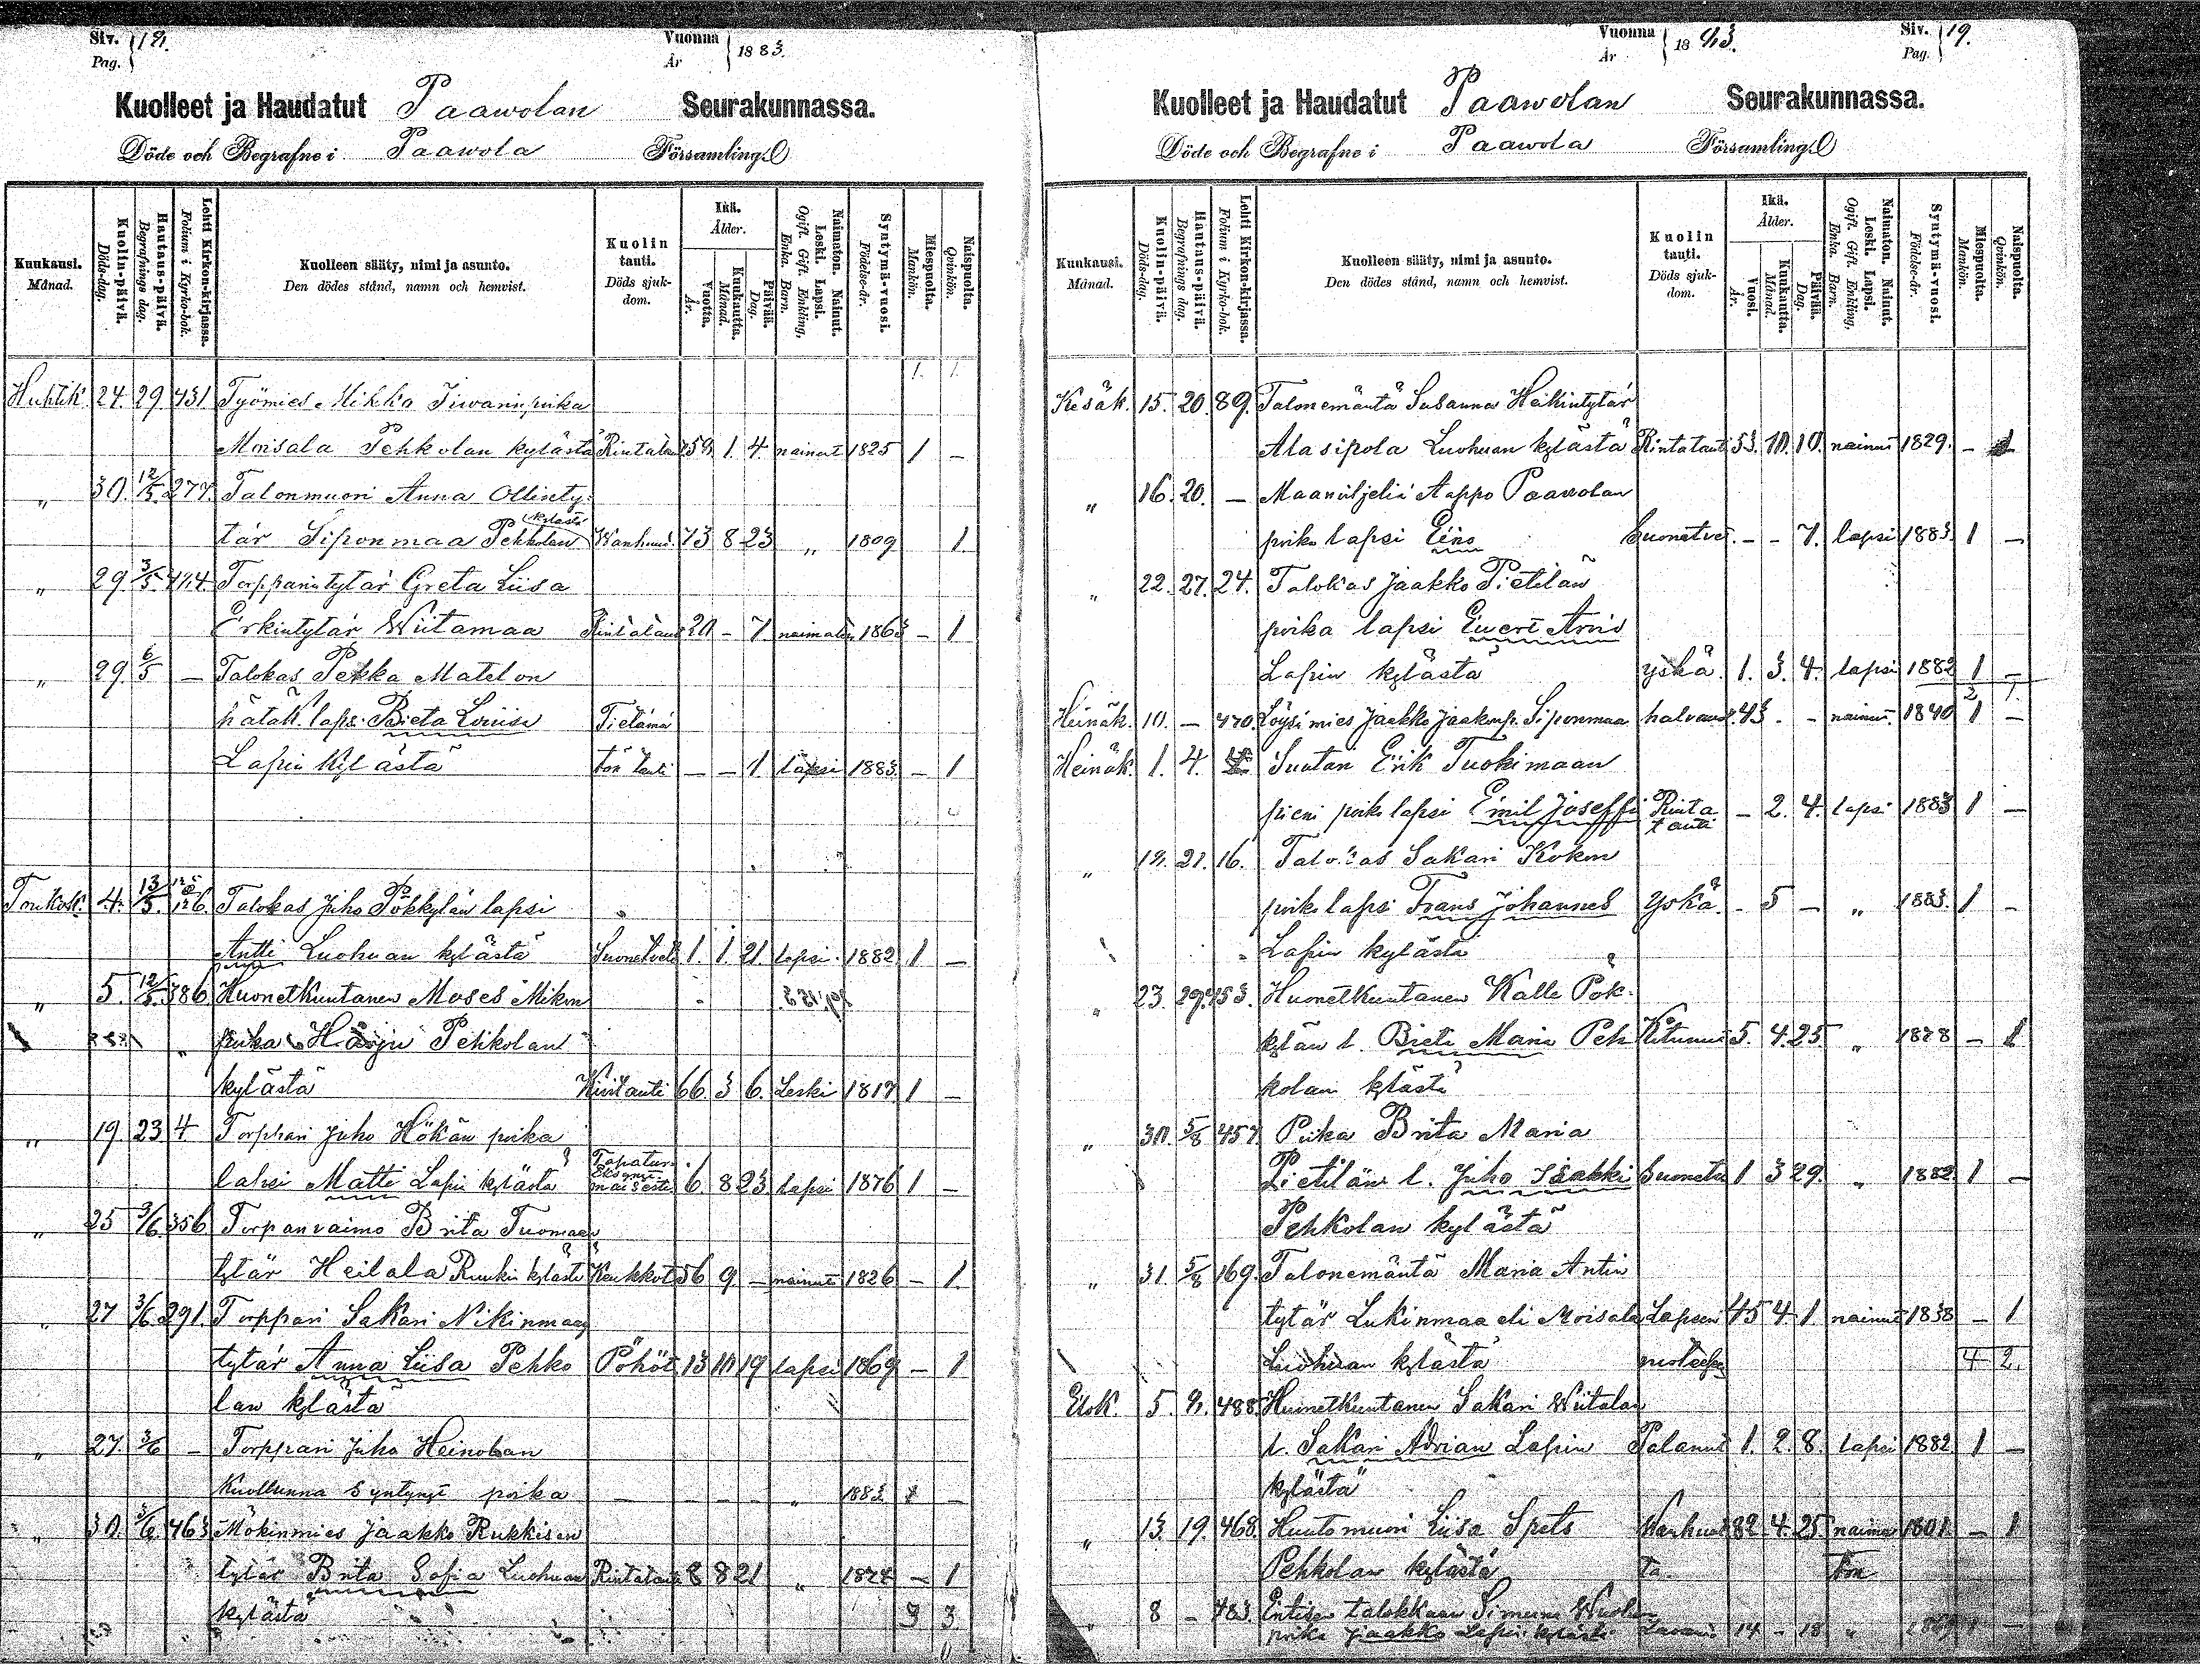 Siv. Pag. 18.
Vuonna År 1883.
Kuolleet ja Haudatut Paawolan Seurakunnassa.
Döde och Begrafne i Paawola Församling
Kuukausi. Månad.
Kuolin-päivä. Döds-dag.
Hautaus-päivä. Begrafnings dag.
Lehti Kirkon-kirjassa. Folium i Kyrko-bok.
Kuolleen sääty, nimi ja asunto. Den dödes stånd, namn och hemvist.
Kuolin tauti. Döds sjukdom.
Ikä. Ålder.
Vuotta. År.
Kuukautta. Månad.
Päivää. Dag.
Naimaton. Nainut. Leski. Lapsi. Ogift. Gift. Enkling, Enka. Barn.
Syntymä-vuosi. Födelse-år.
Miespuolta. Mankön.
Naispuolta. Qvinkön.
Huhtik. 24. 29. 431 Työmies Mikko Iiwarinpoika
Moisala Pehkolan kylästä Rintatau 1. 4. nainut 1825 1 –
„ 30. 12/5. 277. Talonmuori Anna Ollinty-
tär Siponmaa Pehkolan kylästä Wanhuus. 73 8 23 „ 1809 1.
„ 29. 3/5 Torpparintytär Greta Liisa
Erkintytär Wiitamaa Rintataut 20 – 7 naimaton 1863 – 1
„ 29. 6/5 – Talokas Pekka Matelon
lapsi Brieta Lovisa Tietämä
Lapin kylästä tön tauti – – 1 lapsi 1883. – 1
Toukok. 4. 13/5. 126. Talokas Juho Pökkylän lapsi
Antti Luohuan kylästä Suonetveto 1. 1. 21. lapsi. 1882. 1 –
„ 5. 12/5. 386. Huonetkuntanen Moses Mikon
poika Harju Pehkolan
kylästä Kivitauti 66 3 6. Leski 1817. 1 –
„ 19. 23 4 Torppari Juho Hökän poika
lapsi Matti Lapin kylästä Tapatur maisesti 6. 8 23 lapsi 1876 1 –
„ 25 3/6. 356. Torpanvaimo Brita Tuomaan
tytär Heilala Ruukin kylästä 56 9 – nainut 1826 – 1.
„ 27 3/6. 291. Torppari Sakari Nikinmaan
tytär Anna Liisa Pehko Pöhöt. 13 10 19 lapsi 1869 – 1
lan kylästä
„ 27. 3/6 – Torppari Juho Heinolan
Kuollunna syntynyt poika – – – – „ 1883 1 –
„ 30. 3/6. 463 Mökinmies Jaakko Rukkisen
tytär Brita Sofia Luohuan Rintatauti 8 8 21 „ 1874 – 1
kylästä 3 3
Vuonna År 1883.
Siv. Pag. 19.
Kuolleet ja Haudatut Paawolan Seurakunnassa.
Döde och Begrafne i Paawola Församling
Kuukausi. Månad.
Kuolin-päivä. Döds-dag.
Hautaus-päivä. Begrafnings dag.
Lehti Kirkon-kirjassa. Folium i Kyrko-bok.
Kuolleen sääty, nimi ja asunto. Den dödes stånd, namn och hemvist.
Kuolin tauti. Döds sjuk-dom.
Ikä. Ålder.
Vuosi. År.
Kuukautta. Månad.
Päivää. Dag.
Naimaton. Nainut. Leski. Lapsi. Ogift. Gift. Enkling. Enka. Barn.
Syntymä-vuosi. Födelse-år.
Miespuolta. Mankön.
Naispuolta. Qvinkön.
Kesäk. 15. 20. 89. Talonemäntä Susanna Heikintytär
Alasipola Luohuan kylästä Rintatauti 53. 10. 10. nainut 1829. – 1
„ 16. 20. – Maanviljeliä Aappo Paawolan
poika lapsi Eino Suonetvet. – – 7. lapsi 1883. 1 –
„ 22. 27. 24. Talokas Jaakko Pietilän
poika lapsi Evert Arvid
Lapin kylästä yskä. 1. 3. 4. lapsi 1882 1 –
Heinäk. 10. – 470. Löysimies Jaakko Jaakonp. Siponmaa halvaus 43 – – nainut. 1840 1 –
Heinäk. 1. 4. Suutari Erik Tuokimaan
pieni poika lapsi Emil Joseffi Rinta tauti – 2. 4. lapsi 1883 1 –
„ 18. 21. 16. Talokas Sakari Kokon
poika lapsi Frans Johannes Yskä. – 5 – „ 1883. 1 –
Lapin kylästä
„ 23. 29. 453. Huonetkuntanen Kalle Pök-
kylän l. Brieta Maria Peh Kitumus 5. 4. 25. „ 1878 – 1
kolan kylästä
„ 30. 5/8 457 Piika Brita Maria
Pietilän l. Juho Isakki Suonetv. 1 3 29. „ 1882. 1 –
Pehkolan kylästä
„ 31. 5/8 169. Talonemäntä Maria Antin
tytär Lukinmaa eli Moisala Lapsen 45 4 1 nainut 1838 – 1
Luohuan kylästä 4 2.
Elok. 5. 9. 488. Huonetkuntanen Sakari Wiitalan
l. Sakari Adrian Lapin Palanut 1. 2. 8. lapsi 1882 1 –
kylästä
„ 13. 19. 468. Huutomuori Liisa Spets Wanhuut 82. 4. 25 naima 1801. – 1
Pehkolan kylästä ta. ton
„ 8 – 483. Entisen talokkaan Simuna
poika Jaakko Lapin kylästä 14 – 18 „ 1869 1 –